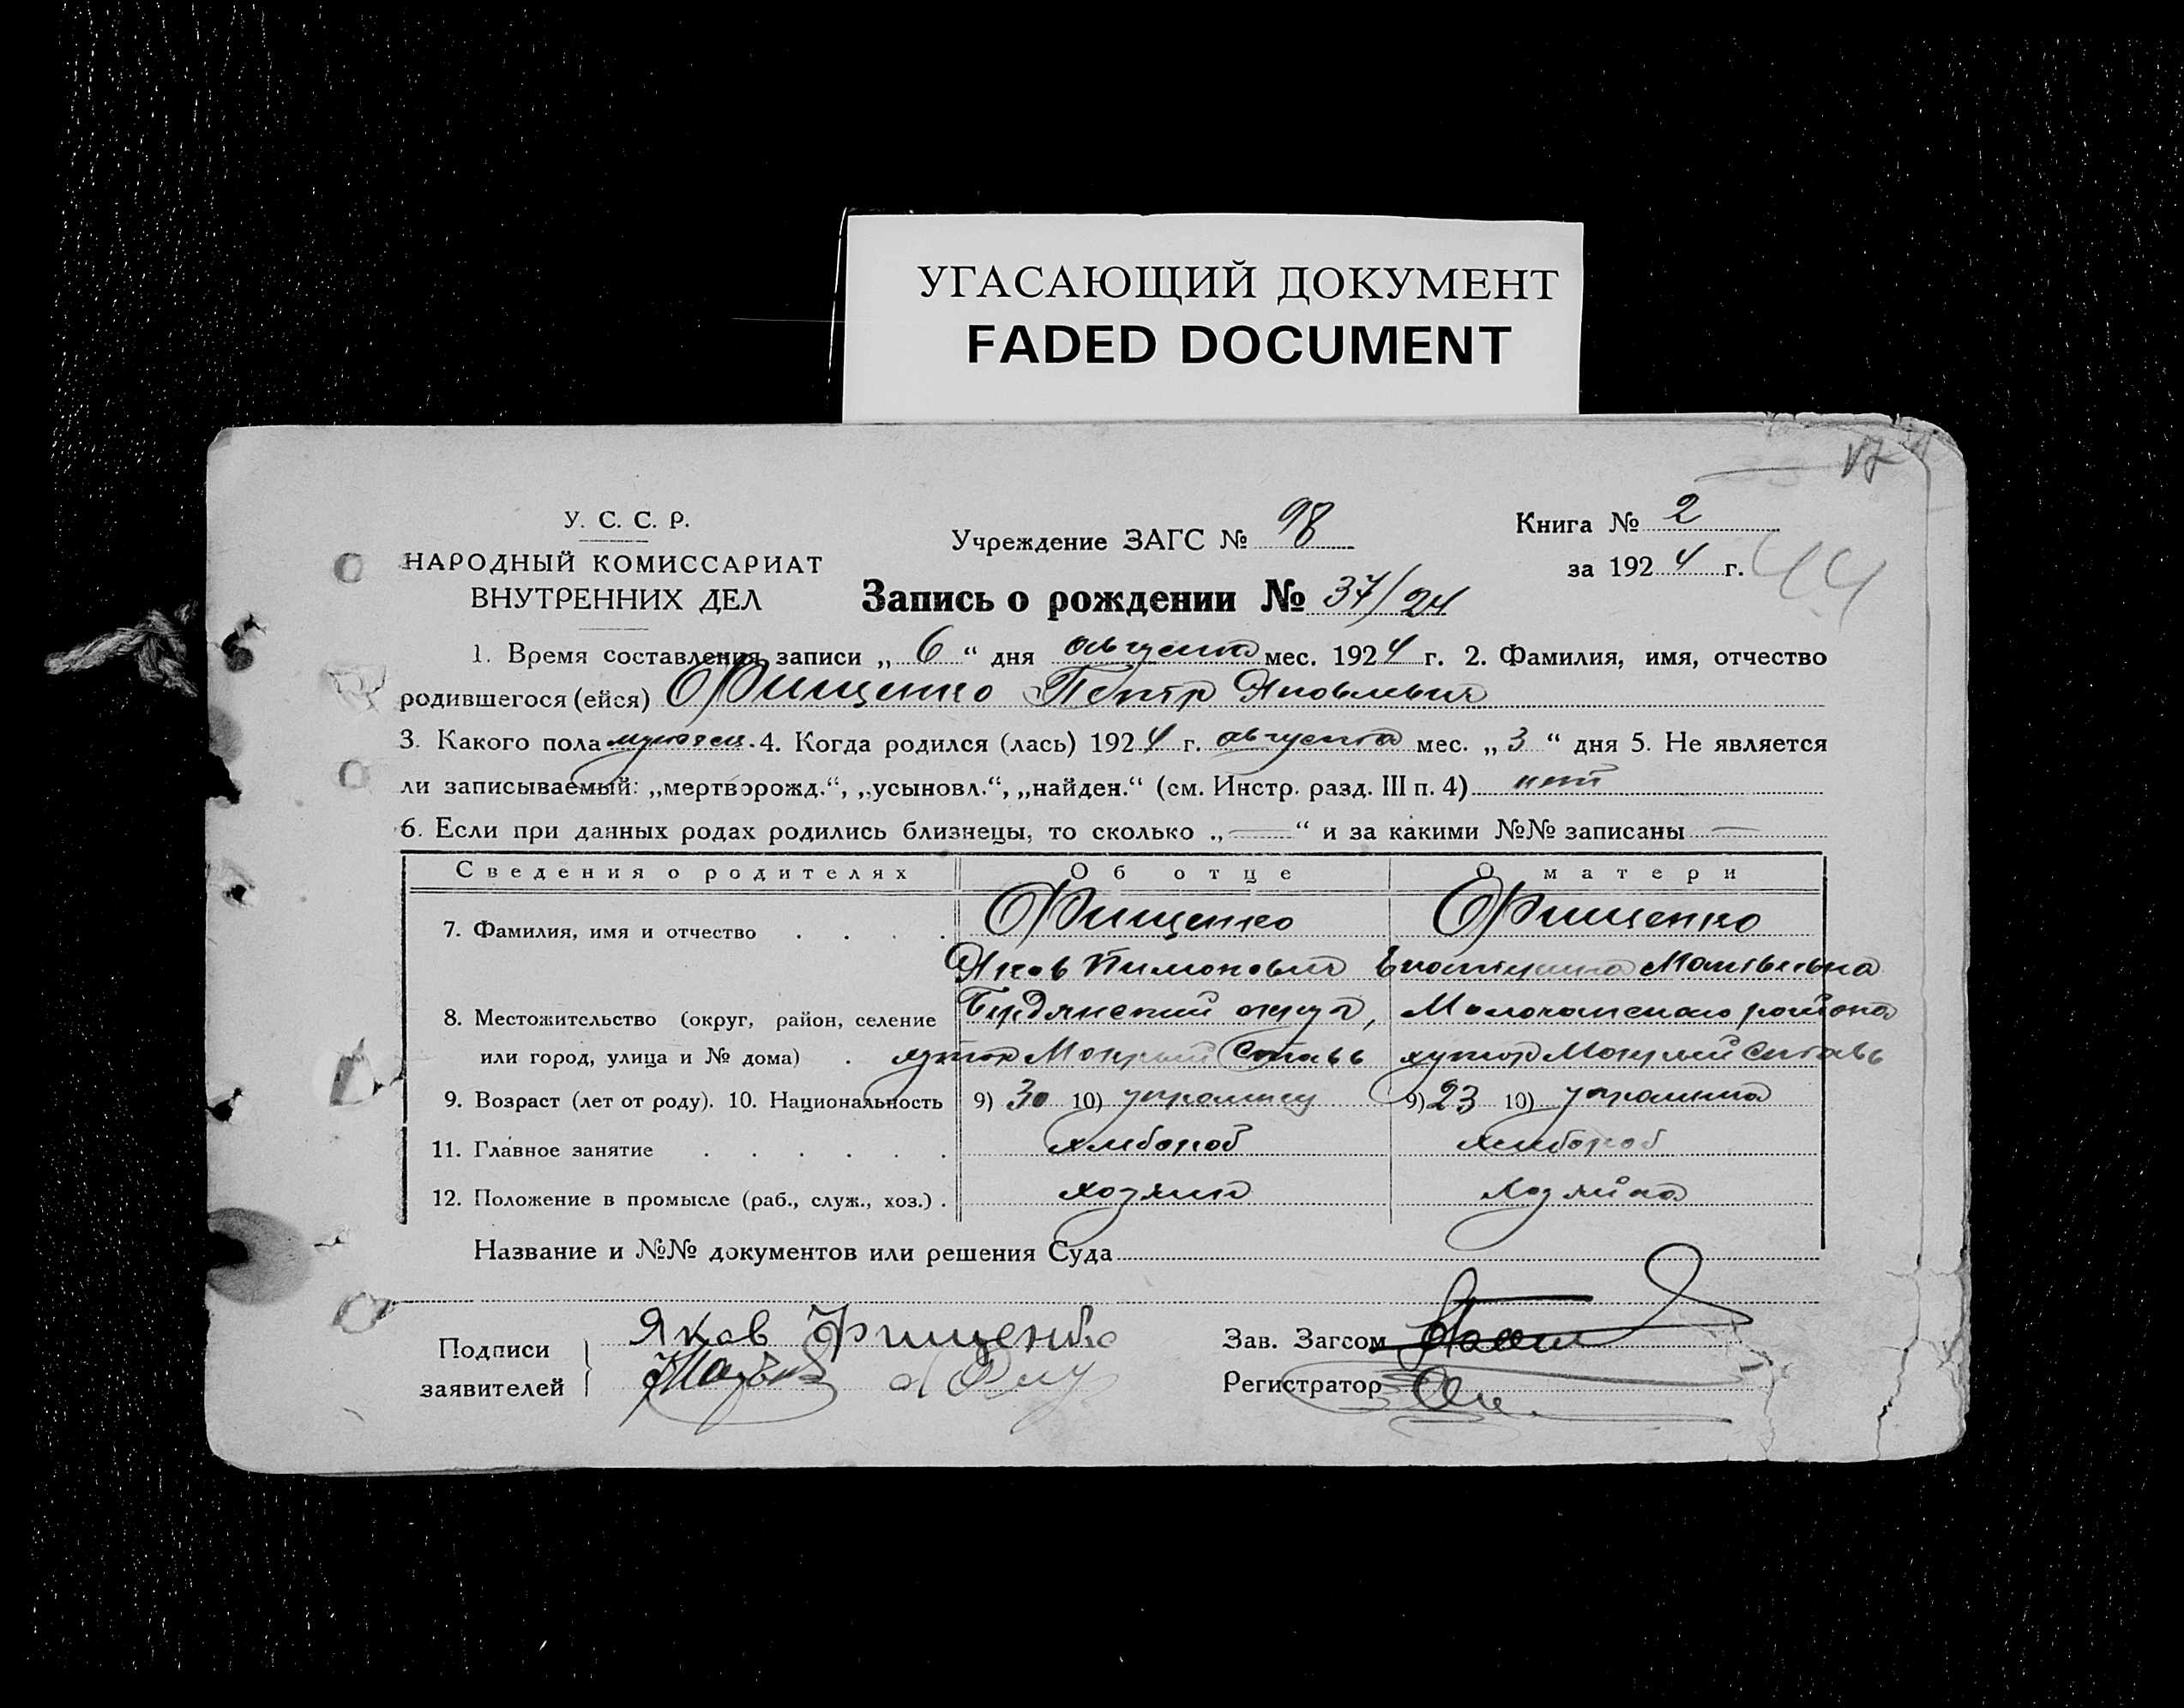 УГАСАЮЩИЙ ДОКУМЕНТ
FADED DOCUMENT
У. С. С. Р.
НАРОДНЫЙ КОМИССАРИАТ
ВНУТРЕННИХ ДЕЛ
Учреждение ЗАГС № 98
Книга № 2
за 1924 г.
44
Запись о рождении № 37/24
1. Время составления записи „ 6 “ дня августа мес. 1924 г. 2. Фамилия, имя, отчество
родившегося (ейся) Фищенко Петр Яковлевич
3. Какого пола мужеск. 4. Когда родился (лась) 1924 г. августа мес. „ 3 “ дня 5. Не является
ли записываемый: „мертворожд.“, „усыновл.“, „найден.“ (см. Инстр. разд. III п. 4) нет
6. Если при данных родах родились близнецы, то сколько „ — “ и за какими №№ записаны —
Сведения о родителях Об отце О матери
7. Фамилия, имя и отчество . . . . Фищенко Фищенко
Яков Пимонович Екатерина Матвеевна
8. Местожительство (округ, район, селение Бердянский округ, Молочанского района
или город, улица и № дома) . хутор Мокрый Ставь хутор Мокрый Ставь
9. Возраст (лет от роду). 10. Национальность 9) 30 10) украинец 9) 23 10) украинка
11. Главное занятие . . . . . . хлебороб хлебороб
12. Положение в промысле (раб., служ., хоз.) . хозяин хозяйка
Название и №№ документов или решения Суда
Подписи
заявителей
Яков Фищенко
Зав. Загсом
Регистратор